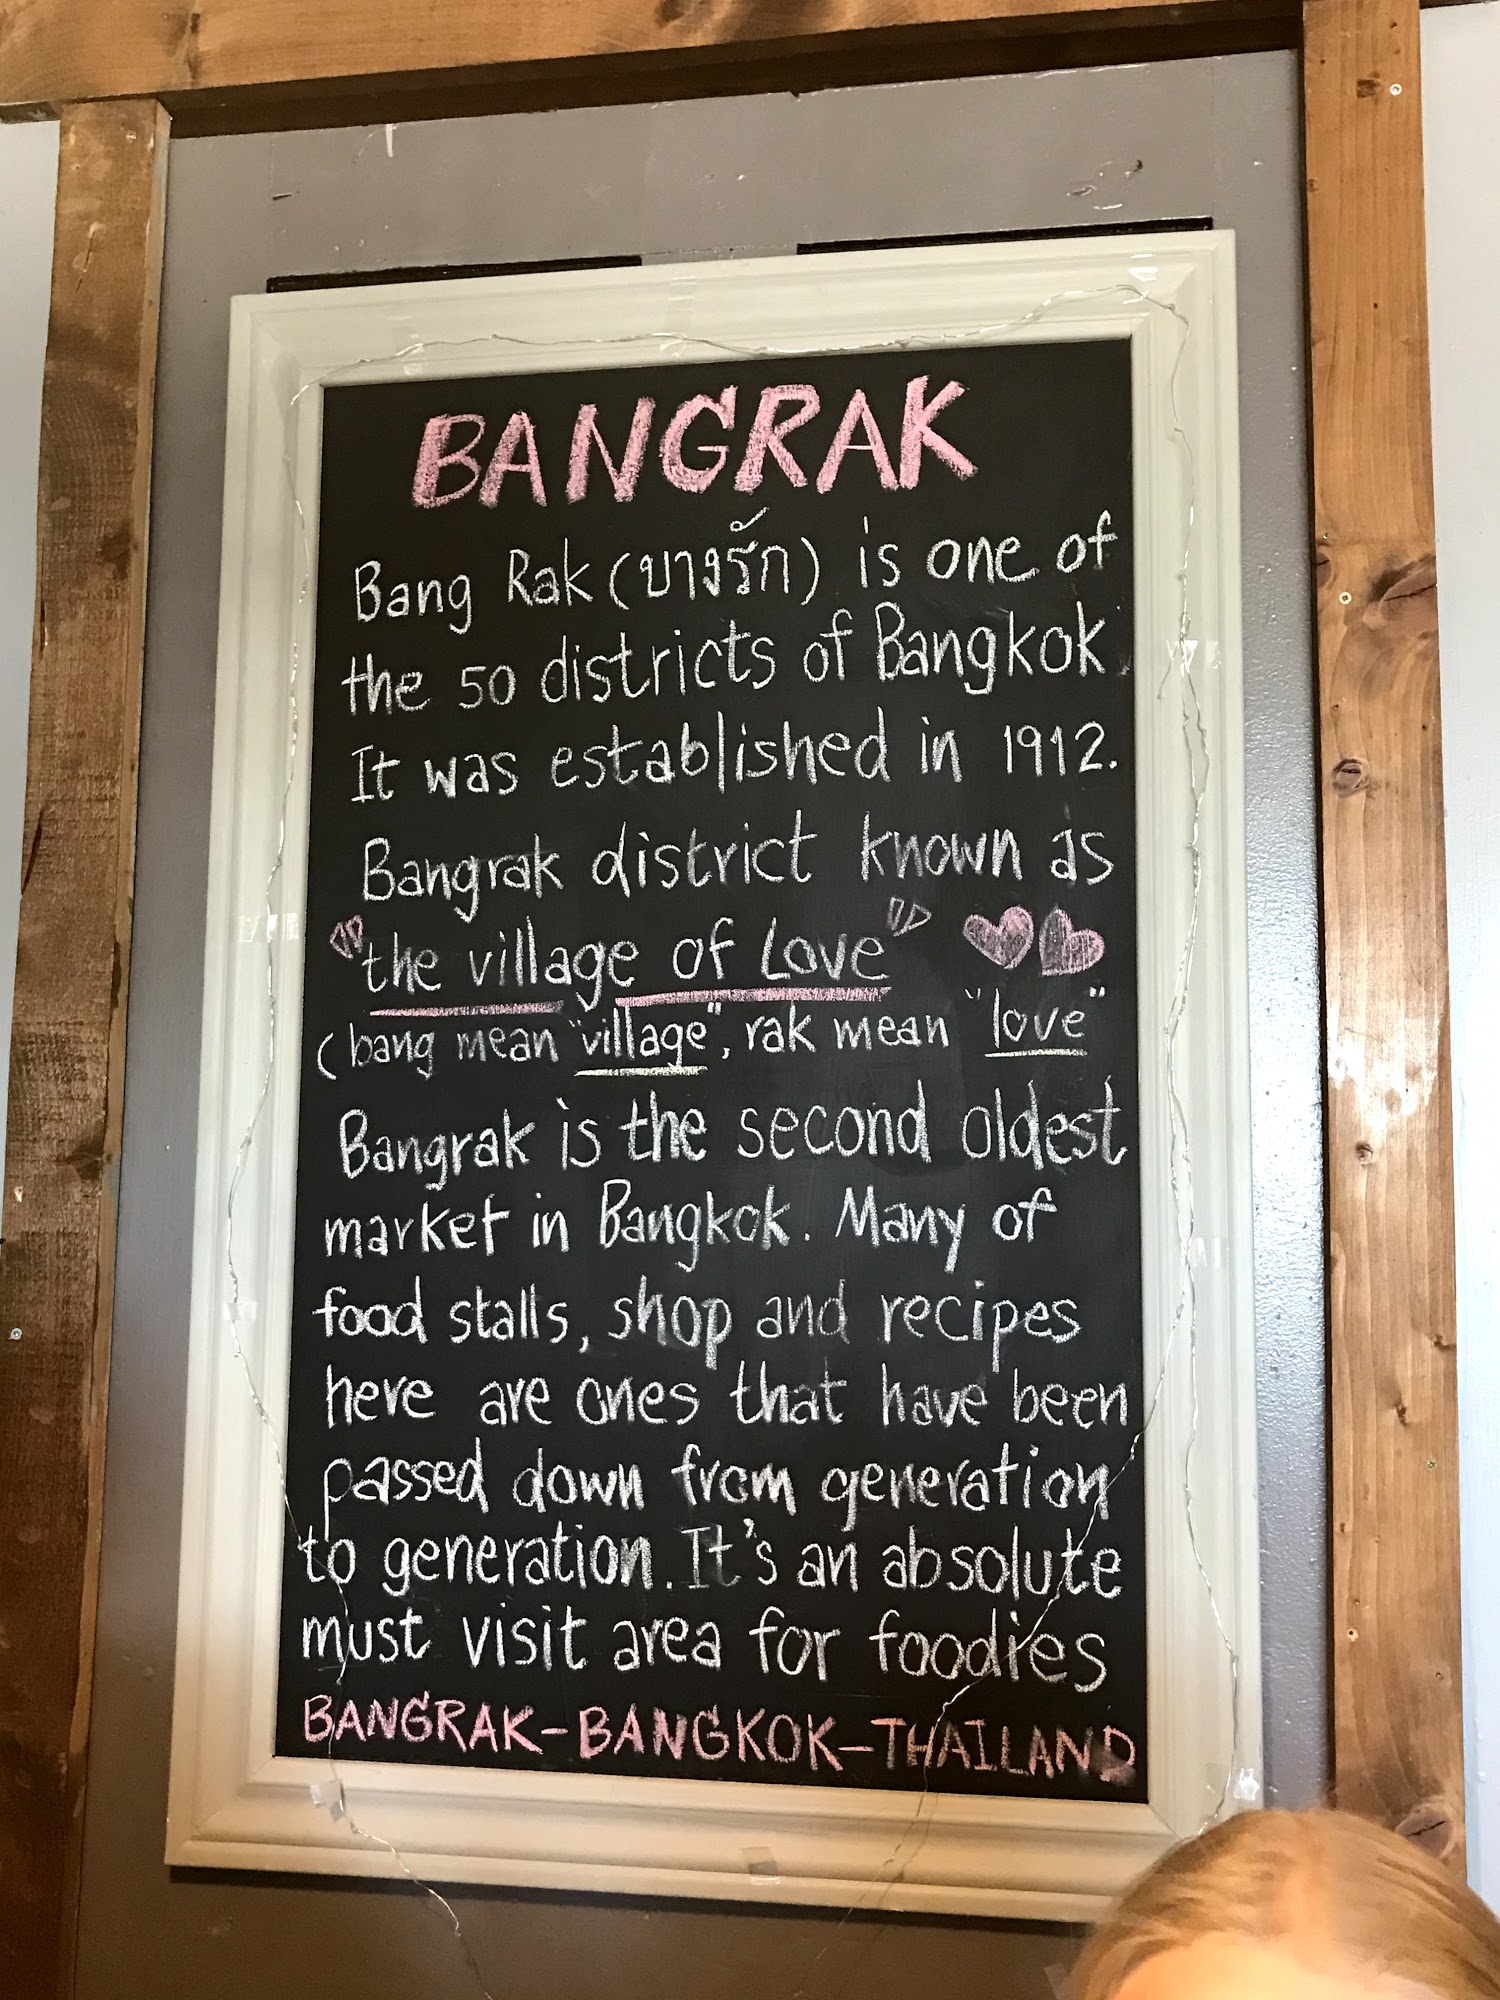 BANGRAK
Bang Rak (บางรัก) is one of
the 50 districts of Bangkok.
It was established in 1912.
Bangrak district known as
"the village of Love"
(bang mean "village", rak mean "love"
Bangrak is the second oldest
market in Bangkok. Many of
food stalls, shop and recipes
here are ones that have been
passed down from generation
to generation. It's an absolute
must visit area for foodies
BANGRAK-BANGKOK-THAILAND